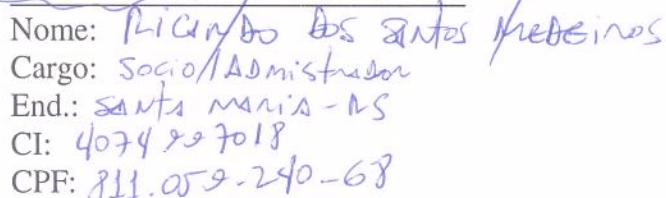 Nome: RICARDO DOS SANTOS MEDEIROS
Cargo: Socio/ADMistrador
End.: SANTA MARIA-RS
CI: 4074997018
CPF: 811.059.240-68